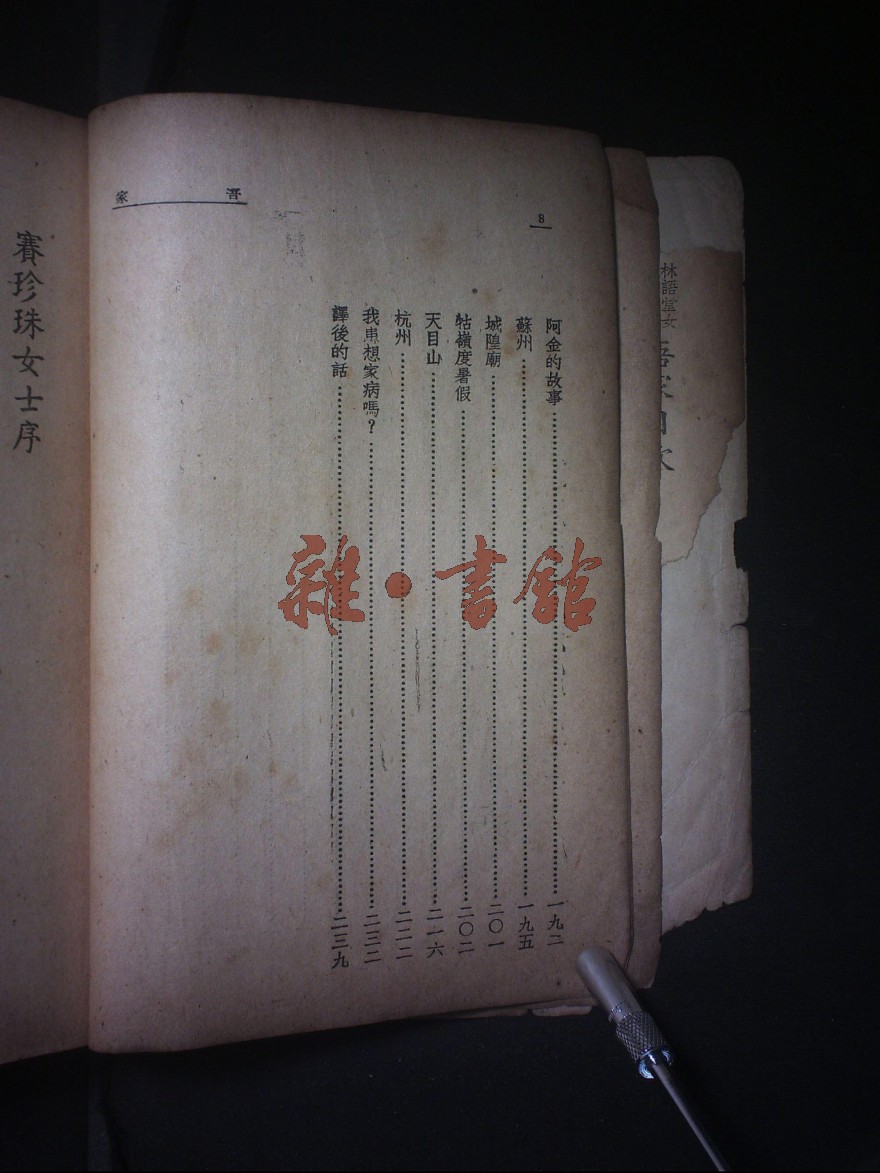 林語堂女
8
吾家
阿金的故事……一九二
蘇州……一九五
城隍廟……二〇一
牯嶺度暑假……二〇二
天目山……二一六
杭州……二二二
我患想家病嗎？……二三二
譯後的話……二三九
賽珍珠女士序
雜·書館